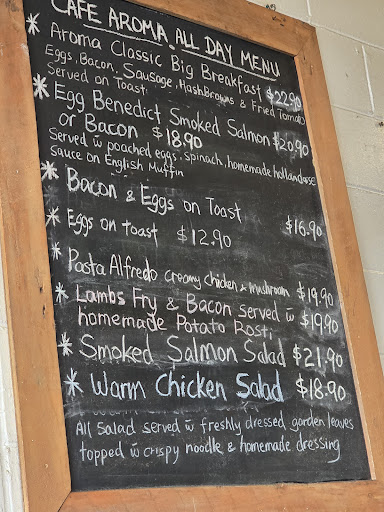 CAFE AROMA ALL DAY MENU
* Aroma Classic Big Breakfast $22.90
Eggs, Bacon, Sausage, HashBrowns & Fried Tomato
Served on Toast
* Egg Benedict Smoked Salmon $20.90
or Bacon $18.90
Served w poached eggs, spinach, homemade hollandaise
sauce on English Muffin
* Bacon & Eggs on Toast $16.90
* Eggs on toast $12.90
* Pasta Alfredo creamy chicken & mushroom $19.90
* Lambs Fry & Bacon served w $19.90
homemade Potato Rosti
* Smoked Salmon Salad $21.90
* Warm Chicken Salad $18.90
All salad served w freshly dressed garden leaves
topped w crispy noodle & homemade dressing